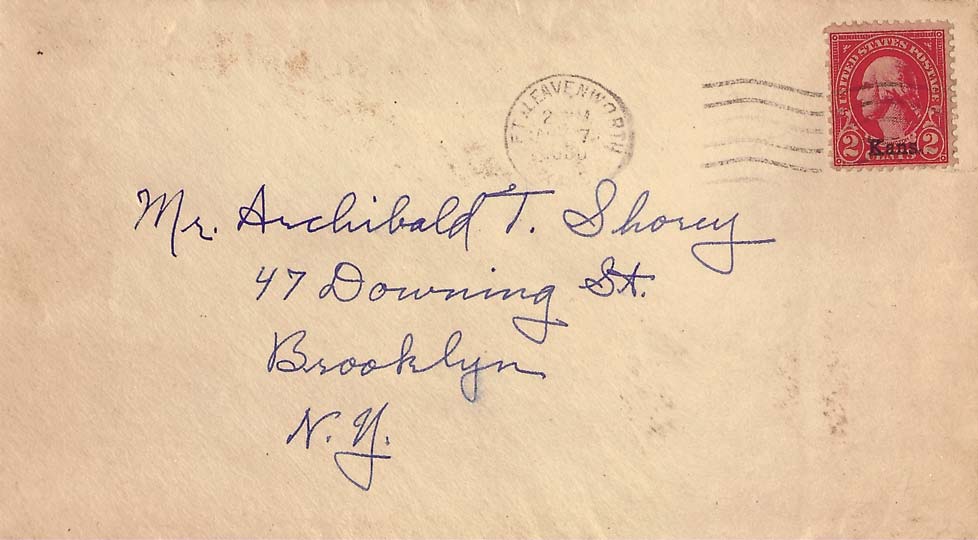 UNITED STATES POSTAGE
2 Kans. 2
CENTS
FT. LEAVENWORTH
2
Mr. Archibald T. Shorey
47 Downing St.
Brooklyn
N. Y.